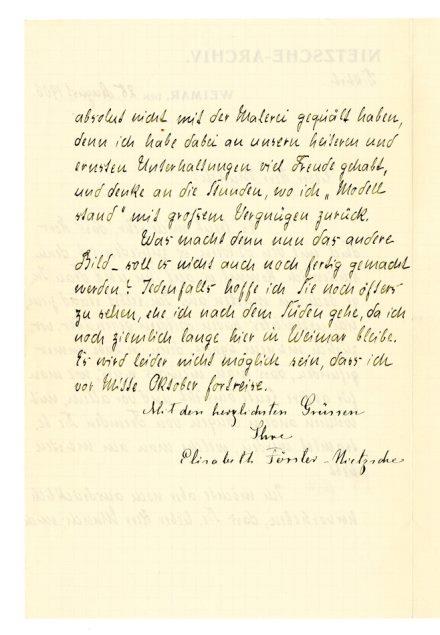 absolut nicht mit der Malerei gequält haben,
denn ich habe dabei an unsern heiteren und
ernsten Unterhaltungen viel Freude gehabt,
und denke an die Stunden, wo ich „Modell
stand“ mit grossem Vergnügen zurück.
Was macht denn nun das andere
Bild – soll es nicht auch noch fertig gemacht
werden? Jedenfalls hoffe ich Sie noch öfters
zu sehen, ehe ich nach dem Süden gehe, da ich
noch ziemlich lange hier in Weimar bleibe.
Es wird leider nicht möglich sein, dass ich
vor Mitte Oktober fortreise.
Mit den herzlichsten Grüssen
Ihre
Elisabeth Förster-Nietzsche